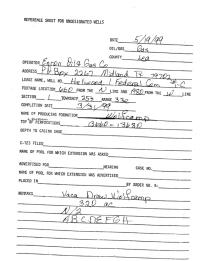 REFERENCE SHEET FOR UNDESIGNATED WELLS
DATE 5/9/99
OIL/GAS Gas
COUNTY Lea
OPERATOR Enron Oil & Gas Co
ADDRESS PO Box 2267 Midland TX 79702
LEASE NAME, WELL NO. 1 Federal Com
FOOTAGE LOCATION 660 FROM THE N LINE AND 1980 FROM THE W LINE
SECTION TOWNSHIP 25S RANGE 33E
COMPLETION DATE 3/31/99
NAME OF PRODUCING FORMATION Wolfcamp
TOP OF PERFORATION 13660 - 13680
DEPTH TO CASING SHOE
C-123 FILED
NAME OF POOL FOR WHICH EXTENSION WAS ASKED
ADVERTISED FOR HEARING CASE NO.
NAME OF POOL FOR WHICH EXTENSION WAS ADVERTISED
PLACED IN BY ORDER NO. R-
REMARKS Vaca Draw Wolfcamp
320 ac
N/2
ABCDEFGH